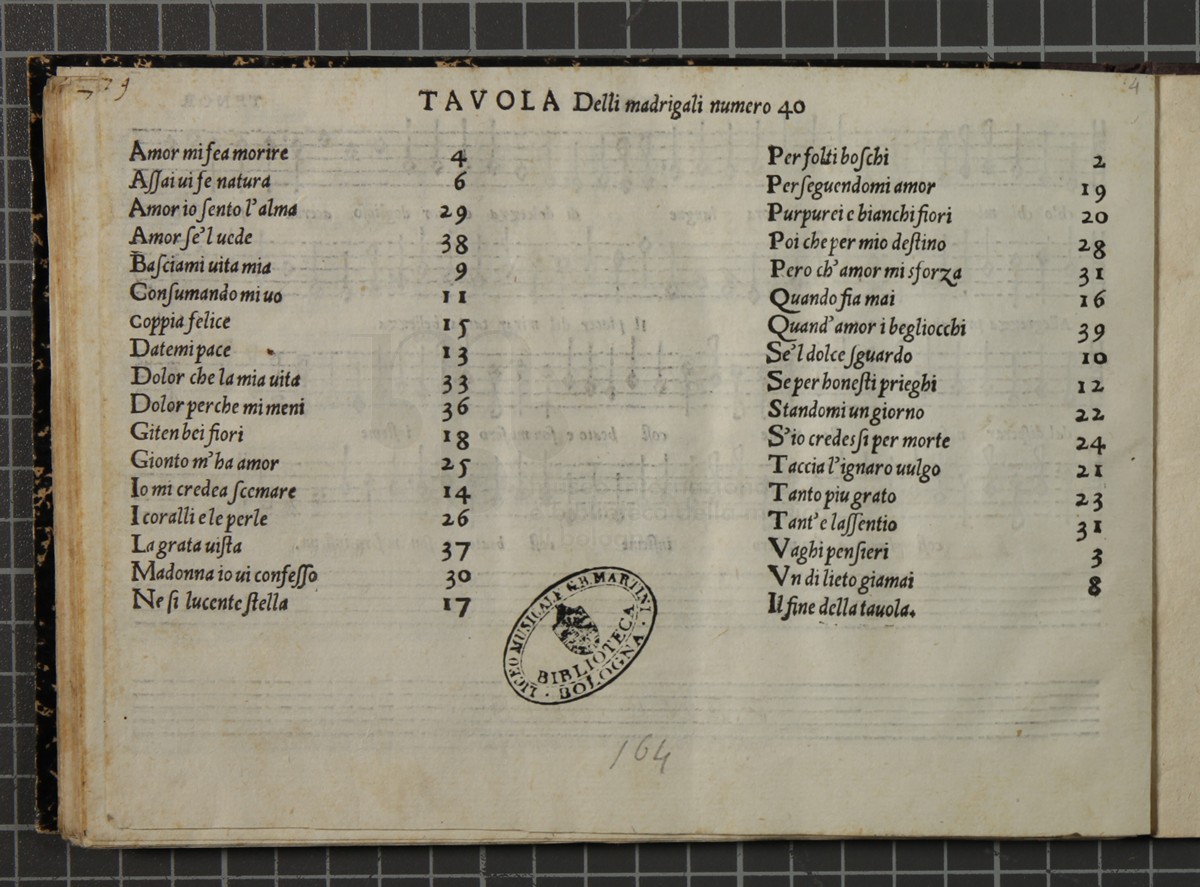 TAVOLA Delli madrigali numero 40
Amor mi fea morire 4
Assai ui fe natura 6
Amor io sento l'alma 29
Amor se'l uede 38
Basciami uita mia 9
Consumando mi uo 11
Coppia felice 15
Datemi pace 13
Dolor che la mia uita 33
Dolor perche mi meni 36
Giten bei fiori 18
Gionto m'ha amor 25
Io mi credea scemare 14
I coralli e le perle 26
La grata uista 37
Madonna io ui confesso 30
Ne si lucente stella 17
Per folti boschi 2
Perseguendomi amor 19
Purpurei e bianchi fiori 20
Poi che per mio destino 28
Pero ch'amor mi sforza 31
Quando fia mai 16
Quand'amor i begliocchi 39
Se'l dolce sguardo 10
Se per honesti prieghi 12
Standomi un giorno 22
S'io credessi per morte 24
Taccia l'ignaro uulgo 21
Tanto piu grato 23
Tant'e lassentio 31
Vaghi pensieri 3
Vn di lieto giamai 8
Il fine della tauola.
LICEO MUSICALE G.B. MARTINI
BIBLIOTECA
BOLOGNA
164